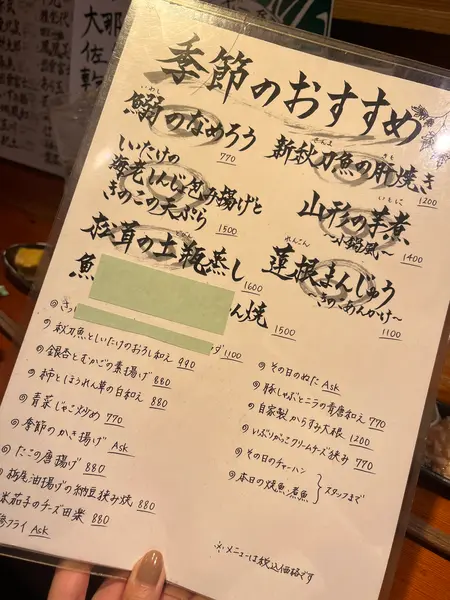 季節のおすすめ
いわし
鰯のなめろう
770
さんま
新秋刀魚の肝焼き
1200
しいたけの
海老しんじょ包み揚げと
きのこの天ぷら
1500
山形の芋煮
〜小鍋風〜
1400
松茸の土瓶蒸し
1600
れんこん
蓮根まんじゅう
〜きのこあんかけ〜
1100
魚
ん焼
1500
さっ
ダ 1100
秋刀魚といたけのおろし和え 990
銀杏とむかごの素揚げ 880
柿とほうれん草の白和え 880
青菜じゃこ炒め 770
季節のかき揚げ Ask
たこの唐揚げ 880
栃尾油揚げの納豆挟み焼 880
米茄子のチーズ田楽 880
フライ Ask
その日のぬた Ask
豚しゃぶとニラの青唐和え 770
自家製からすみ大根 1200
いぶりがっこクリームチーズ挟み 770
その日のチャーハン
本日の焼魚、煮魚
スタッフまで
※メニューは税込価格です